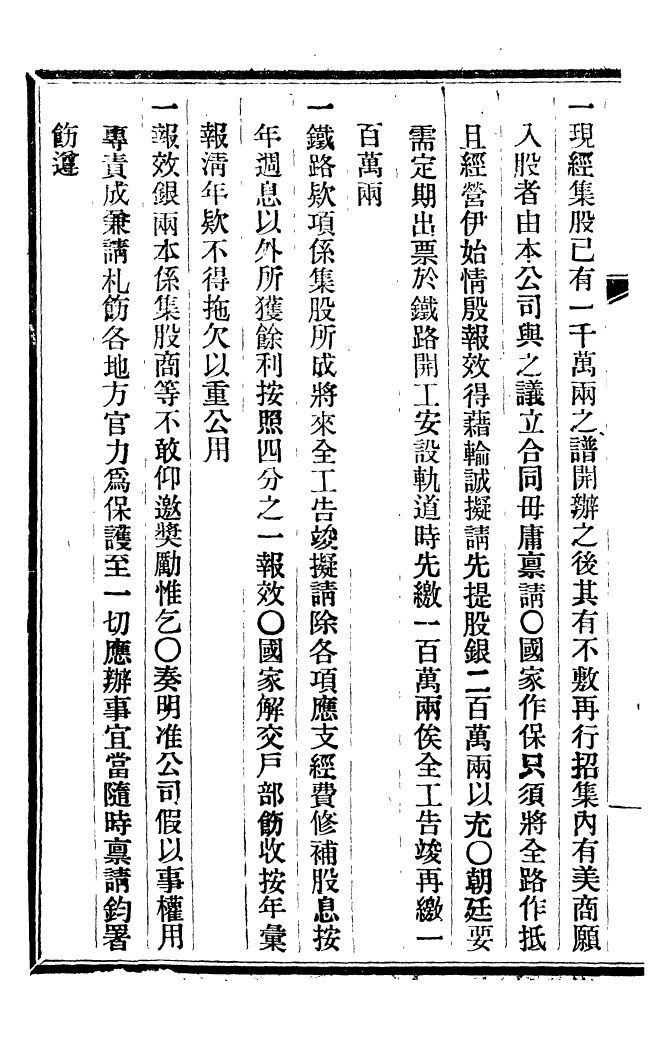 一現經集股已有一千萬兩之譜開辦之後其有不敷再行招集內有美商願
入股者由本公司與之議立合同毋庸禀請〇國家作保只須將全路作抵
且經營伊始情殷報效得藉輸誠擬請先提股銀二百萬兩以充〇朝廷要
需定期出票於鐵路開工安設軌道時先繳一百萬兩俟全工告竣再繳一
百萬兩
一鐵路欵項係集股所成將來全工告竣擬請除各項應支經費修補股息按
年週息以外所獲餘利按照四分之一報效〇國家解交戶部飭收按年彙
報清年欵不得拖欠以重公用
一報效銀兩本係集股商等不敢仰邀奬勵惟乞〇奏明准公司假以事權用
專責成兼請札飭各地方官力爲保護至一切應辦事宜當隨時禀請鈞署
飭遵